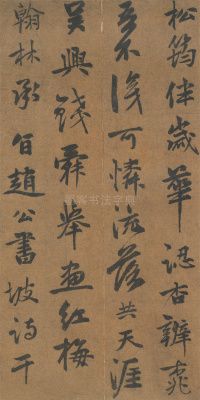 松筠伴歲華認杏辨桃
吾不復可憐流落共天涯
吳興錢舜舉畫紅梅
翰林承旨趙公書坡詩于